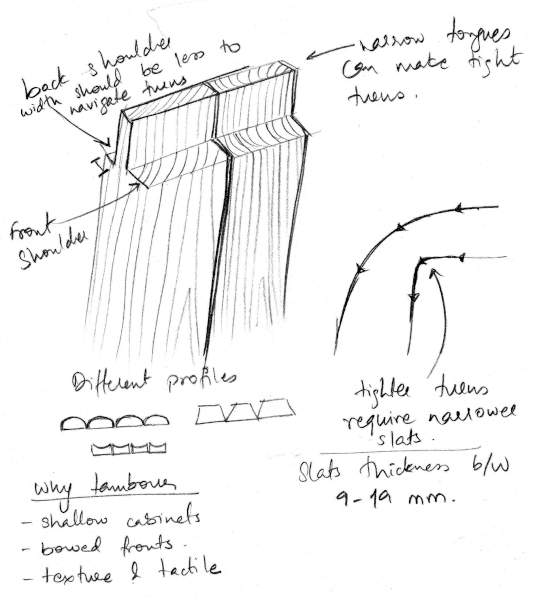 back shoulder
width should be less to
navigate turns
narrow tongues
can make tight
turns.
Front
Shoulder
Different profiles
tighter turns
require narrower
slats.
Slats thickness b/w
9-19 mm.
why tambour
- shallow cabinets
- bowed fronts.
- texture & tactile